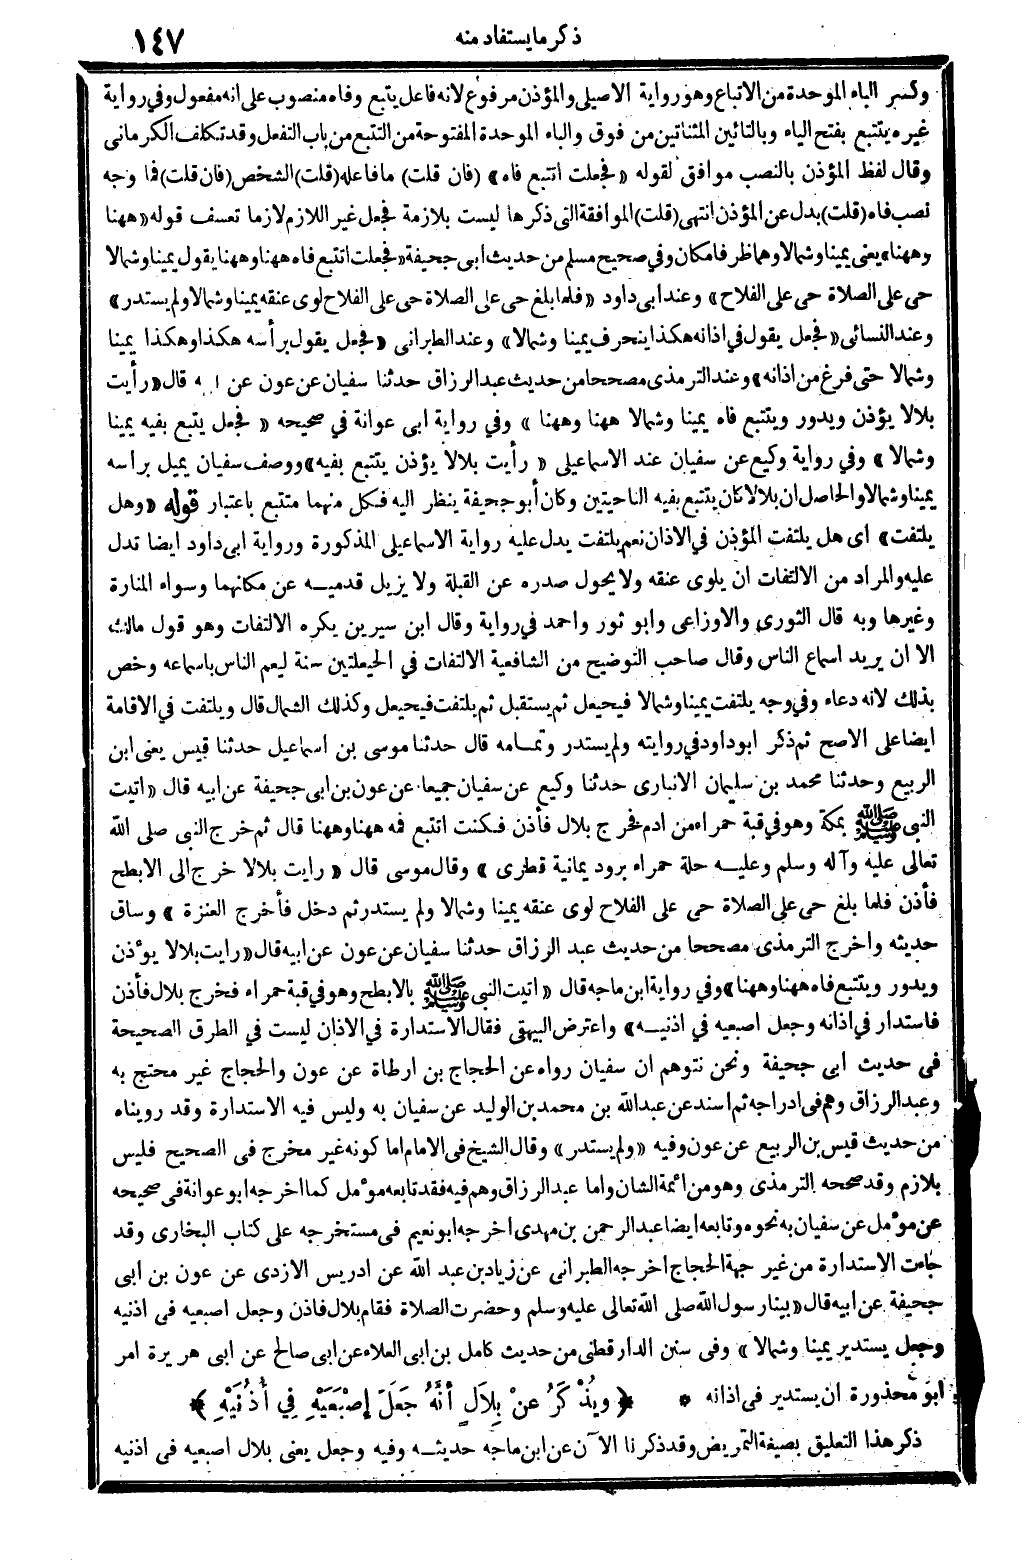 ذكر ما يستفاد منه
١٤٧
وكسر الباء الموحدة من الاتباع وهو رواية الاصيلى والمؤذن مرفوع لانه فاعل يتبع وفاه منصوب على انه مفعول وفي رواية
غيره يتتبع بفتح الياء وبالتائين المثناتين من فوق والباء الموحدة المفتوحة من التتبع من باب التفعل وقد تكلف الكرمانى
وقال لفظ المؤذن بالنصب موافق لقوله «فجعلت اتتبع فاه» (فان قلت) ما فاعله (قلت) الشخص (فان قلت) فما وجه
نصب فاه (قلت) بدل عن المؤذن انتهى (قلت) الموافقة التى ذكرها ليست بلازمة فجعل غير اللازم لازما تعسف قوله «ههنا
وههنا» يعنى يمينا وشمالا وهما ظرفا مكان وفي صحيح مسلم من حديث ابى جحيفة «فجعلت اتتبع فاه ههنا وههنا يقول يمينا وشمالا
حى على الصلاة حى على الفلاح» وعند ابى داود «فلما بلغ حى على الصلاة حى على الفلاح لوى عنقه يمينا وشمالا ولم يستدر»
وعند النسائى «فجعل يقول في اذانه هكذا ينحرف يمينا وشمالا» وعند الطبرانى «فجعل يقول برأسه هكذا وهكذا يمينا
وشمالا حتى فرغ من اذانه» وعند الترمذى مصححا من حديث عبد الرزاق حدثنا سفيان عن عون عن ا ـه قال «رأيت
بلالا يؤذن ويدور ويتتبع فاه يمينا وشمالا ههنا وههنا» وفي رواية ابى عوانة في صحيحه «فجعل يتبع بفيه يمينا
وشمالا» وفي رواية وكيع عن سفيان عند الاسماعيلى «رأيت بلالا يؤذن يتتبع بفيه» ووصف سفيان يميل برأسه
يمينا وشمالا والحاصل ان بلالا كان يتتبع بفيه الناحيتين وكان أبو جحيفة ينظر اليه فكل منهما متتبع باعتبار قوله «وهل
يلتفت» اى هل يلتفت المؤذن في الاذان نعم يلتفت يدل عليه رواية الاسماعيلى المذكورة ورواية ابى داود ايضا تدل
عليه والمراد من الالتفات ان يلوى عنقه ولا يحول صدره عن القبلة ولا يزيل قدميــه عن مكانهما وسواء المنارة
وغيرها وبه قال الثورى والاوزاعى وابو ثور واحمد في رواية وقال ابن سيرين يكره الالتفات وهو قول مالك
الا ان يريد اسماع الناس وقال صاحب التوضيح من الشافعية الالتفات في الحيعلتين سنة ليعم الناس باسماعه وخص
بذلك لانه دعاء وفي وجه يلتفت يمينا وشمالا فيحيعل ثم يستقبل ثم يلتفت فيحيعل وكذلك الشمال قال ويلتفت في الاقامة
ايضا على الاصح ثم ذكر ابو داود في روايته ولم يستدر وتمـامه قال حدثنا موسى بن اسماعيل حدثنا قيس يعنى ابن
الربيع وحدثنا محمد بن سليمان الانبارى حدثنا وكيع عن سفيان جميعا عن عون بن ابى جحيفة عن ابيه قال «اتيت
النبى ﷺ بمكة وهو في قبة حمراء من ادم فخرج بلال فأذن فكنت اتتبع فمه ههنا وههنا قال ثم خرج النبى صلى الله
تعالى عليه وآله وسلم وعليــه حلة حمراء برود يمانية قطرى» وقال موسى قال «رايت بلالا خرج الى الابطح
فأذن فلما بلغ حى على الصلاة حى على الفلاح لوى عنقه يمينا وشمالا ولم يستدر ثم دخل فأخرج العنزة» وساق
حديثه واخرج الترمذى مصححا من حديث عبد الرزاق حدثنا سفيان عن عون عن ابيه قال «رايت بلالا يوٴذن
ويدور ويتتبع فاه ههنا وههنا» وفي رواية ابن ماجه قال «اتيت النبى ﷺ بالابطح وهو في قبة حمراء فخرج بلال فأذن
فاستدار في اذانه وجعل اصبعيه في اذنيــه» واعترض البيهقى فقال الاستدارة في الاذان ليست في الطرق الصحيحة
فى حديث ابى جحيفة ونحن نتوهم ان سفيان رواه عن الحجاج بن ارطاة عن عون والحجاج غير محتج به
وعبد الرزاق وهم فى ادراجه ثم اسند عن عبد الله بن محمد بن الوليد عن سفيان به وليس فيه الاستدارة وقد رويناه
من حديث قيس بن الربيع عن عون وفيه «ولم يستدر» وقال الشيخ فى الامام اما كونه غير مخرج فى الصحيح فليس
بلازم وقد صححه الترمذى وهو من ائمة الشان واما عبد الرزاق وهم فيه فقد تابعه موٴمل كما اخرجه ابو عوانة فى صحيحه
عن موٴمل عن سفيان به نحوه وتابعه ايضا عبد الرحمن بن مهدى اخرجه ابو نعيم فى مستخرجه على كتاب البخارى وقد
جاءت الاستدارة من غير جهة الحجاج اخرجه الطبرانى عن زياد بن عبد الله عن ادريس الازدى عن عون بن ابى
جحيفة عن ابيه قال «بينا رسول الله صلى الله تعالى عليه وسلم وحضرت الصلاة فقام بلال فاذن وجعل اصبعيه فى اذنيه
وجعل يستدير يمينا وشمالا» وفى سنن الدارقطنى من حديث كامل بن ابى العلاء عن ابى صالح عن ابى هريرة امر
ابو محذورة ان يستدير فى اذانه * ﴿ ويُذْكَرُ عنْ بِلاَلٍ أنَّهُ جَعَلَ إصْبَعَيْهِ فِي أُذُنَيْهِ ﴾
ذكر هذا التعليق بصيغة التمريض وقد ذكرنا الآن عن ابن ماجه حديثــه وفيه وجعل يعنى بلال اصبعيه فى اذنيه